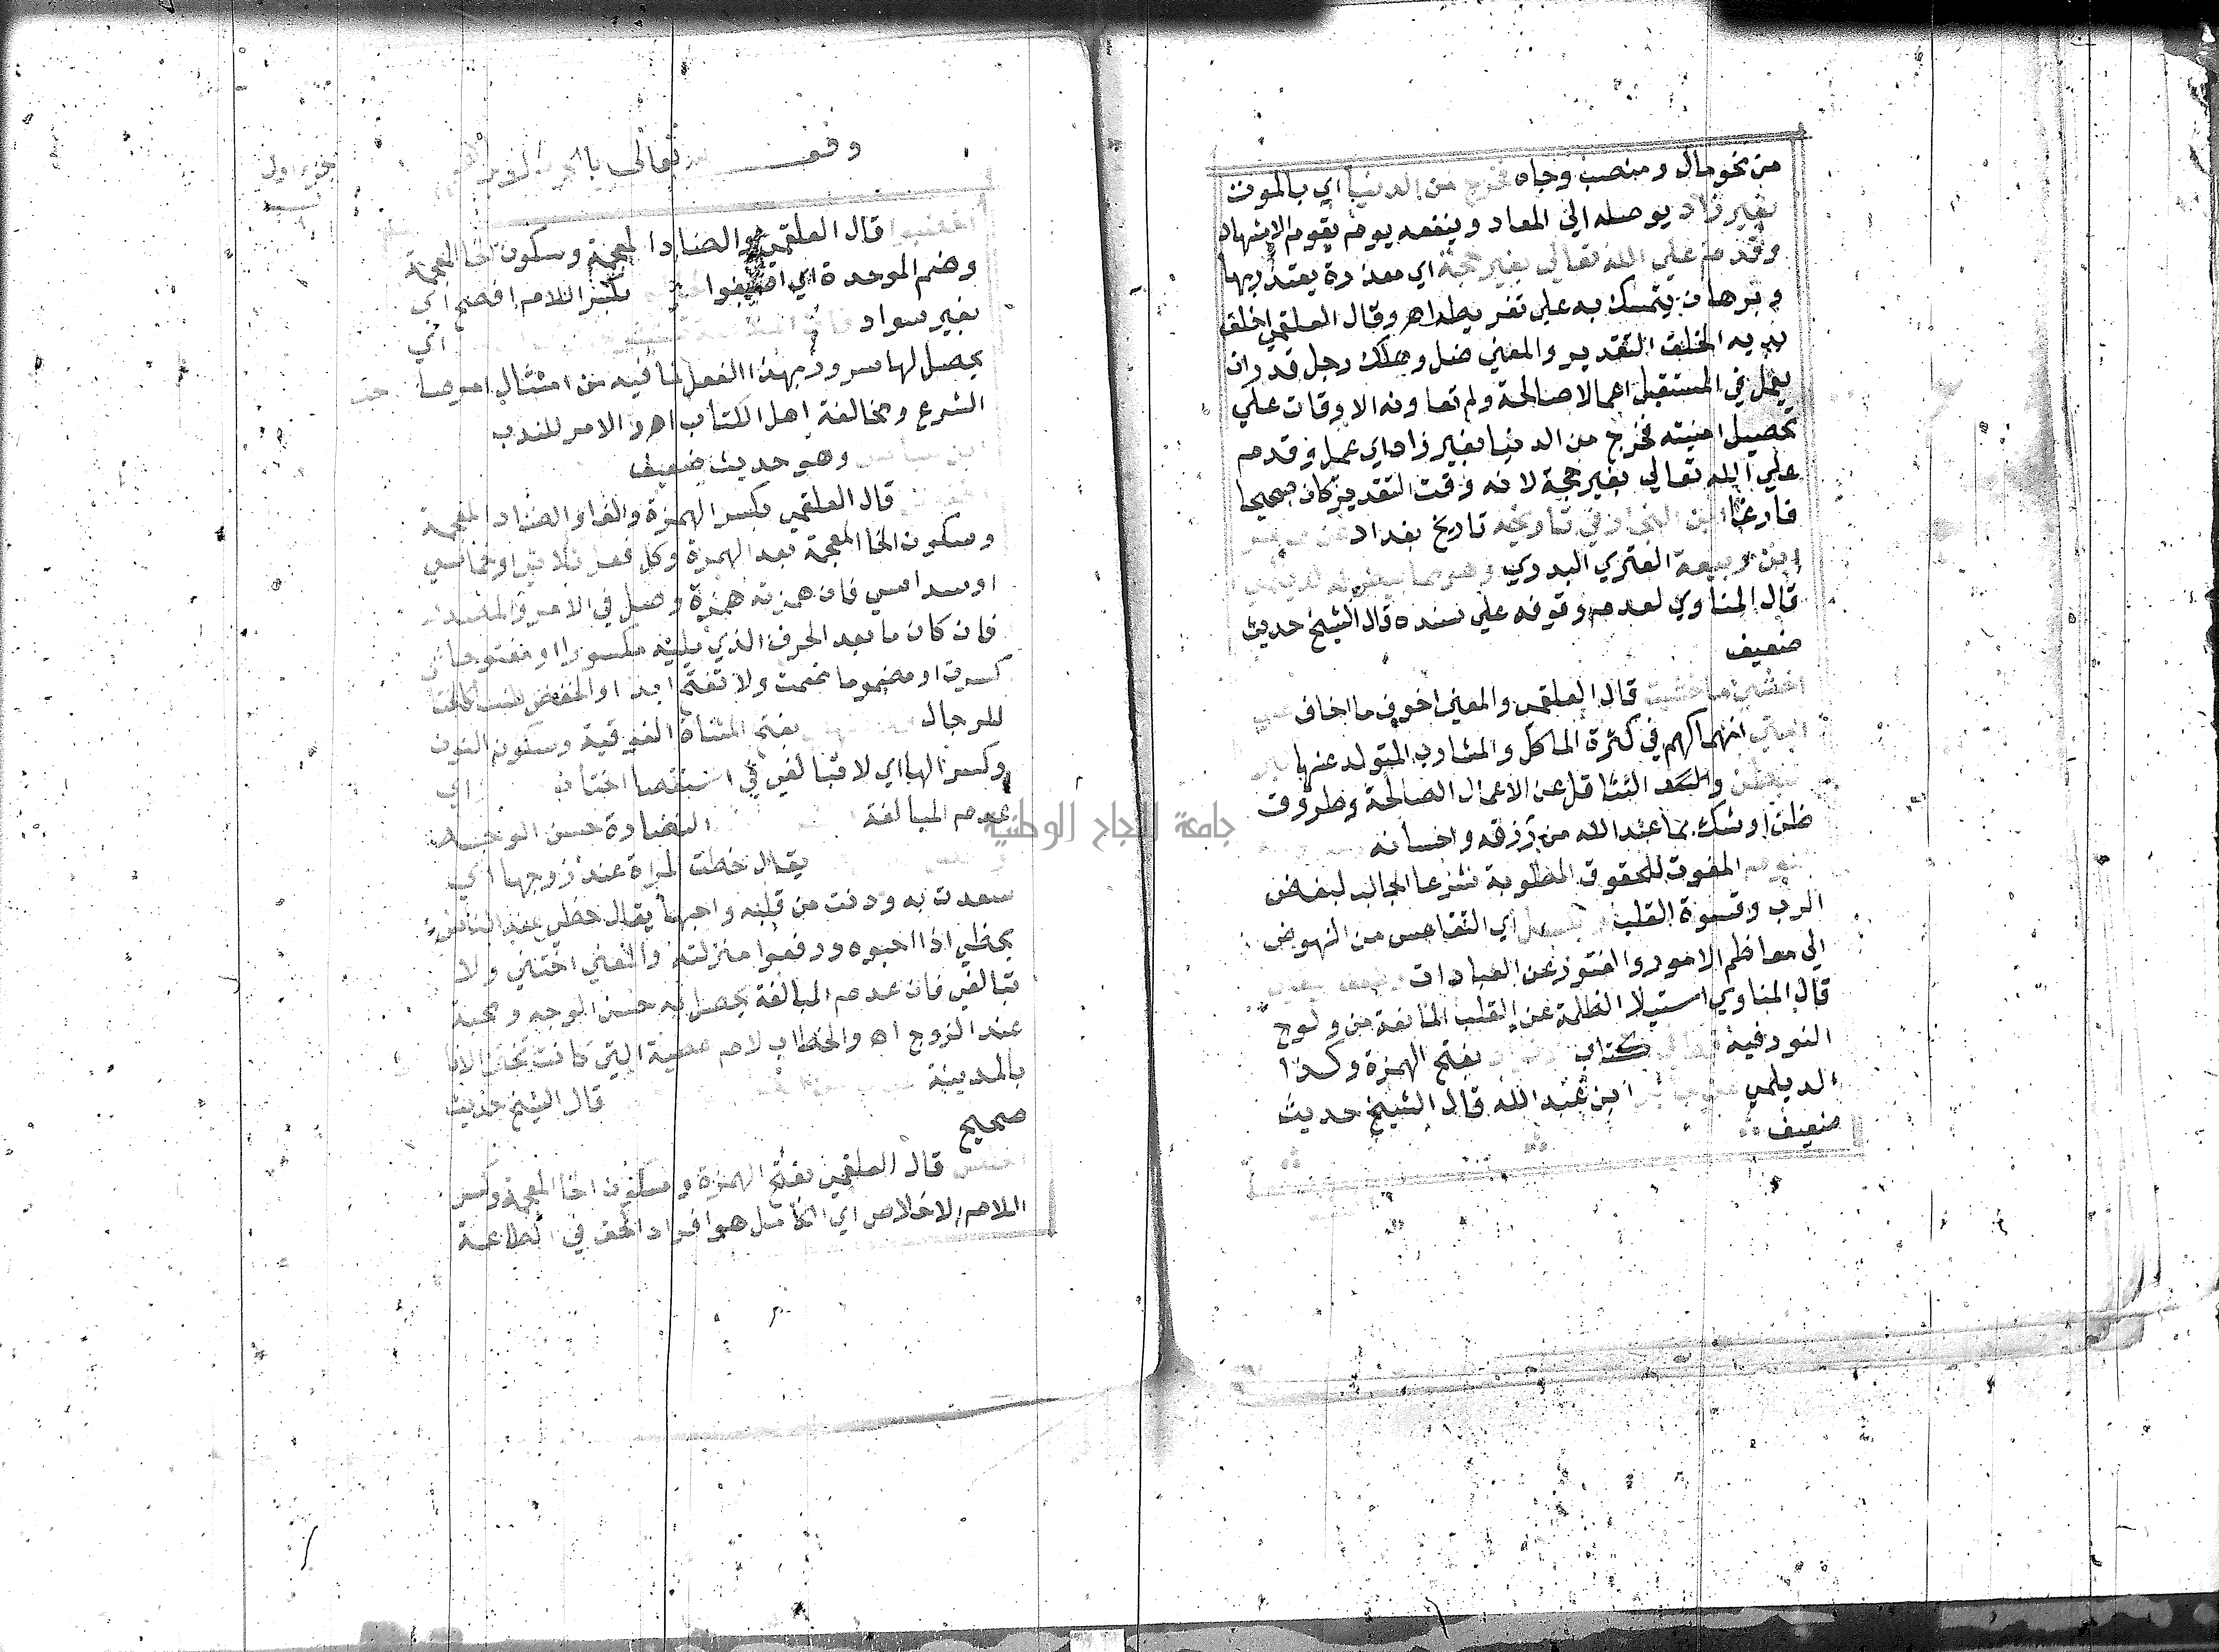 من نحو مال ومنصب وجاه فخرج من الدنيا اي بالموت
بغير زاد يوصله الي المعاد وينفعه يوم يقوم الاشهاد
وقدم علي الله تعالي بغير حجة اي معذرة يعتذر بها
وبرهان يتمسك به علي تفريطه اهـ وقال العلقمي اخلق
يديه الخلق التقدير والمعني ضل وهلك رجل قدر ان
يعمل في المستقبل اعمالا صالحة ولم تعاونه الاوقات علي
تحصيل امنيته فخرج من الدنيا بغير زاد اي عمل وقدم
علي الله تعالي بغير حجة لانه وقت التقدير كان صحيحا
فارغا ابن النجار في تاريخه تاريخ بغداد عن
ابن ربيعة العنزي البدري وهو مما بيض له الديلمي
قال المناوي لعدم وقوفه علي سنده قال الشيخ حديث
ضعيف
اخشي ما خشيت قال العلقمي والمعني اخوف ما اخاف علي
امتي انهماكهم في كثرة الماكل والمشارب المتولد عنها
التثاقل عن الاعمال الصالحة وطروق
ظن او شك بما عند الله من رزقه واحسانه
المفوت للحقوق المطلوبة شرعا الجالب لبغض
الرب وقسوة القلب اي التقاعس من النهوض
الي معاظم الامور والفتور عن العبادات
قال المناوي استيلا الظلمة عن القلب المانعة من ولوج
النور فيه كتاب بفتح الهمزة وكذا
الديلمي ابن عبد الله قال الشيخ حديث
ضعيف
وقف تعالى
جزء اول
اختضبوا قال العلقمي والضاد المعجمة وسكون الخا المعجمة
وضم الموحدة اي بكسر اللام افصح اي
بغير سواد اي
يحصل لها سرور بهذا الفعل لما فيه من امتثال
الشرع ومخالفة اهل الكتاب اهـ والامر للندب
وهو حديث ضعيف
قال العلقمي بكسر الهمزة والفا والضاد المعجمة
وسكون الخا المعجمة بعد الهمزة وكل فعل ثلاثي او خماسي
او سداسي فان همزته همزة وصل في الامر والمصدر
فان كان ما بعد الحرف الذي يليه مكسورا او مفتوحا
كسرت او مضموما ضمت ولا تفتح ابدا والخفض للنسا كالختان
للرجال بفتح المثناة الفوقية وسكون النون
وكسر الها اي لا تبالغي في استقصا الختان اي
عدم المبالغة النضارة حسن الوجه
يقال حظت المراة عند زوجها اي
سعدت به ودنت من قلبه واحبها يقال حظي عند الناس
يحظي اذا احبوه ورفعوا منزلته والمعني اختني ولا
تبالغي فان عدم المبالغة يحصل به حسن الوجه ومحبة
عند الزوج اهـ والخطاب لام عطية التي كانت تختن الاناث
بالمدينة قال الشيخ حديث
صحيح
قال العلقمي بفتح الهمزة وسكون الخا المعجمة وكسر
اللام الاخلاص اي الكامل هو افراد الحق في الطاعة
جامعة النجاح الوطنية